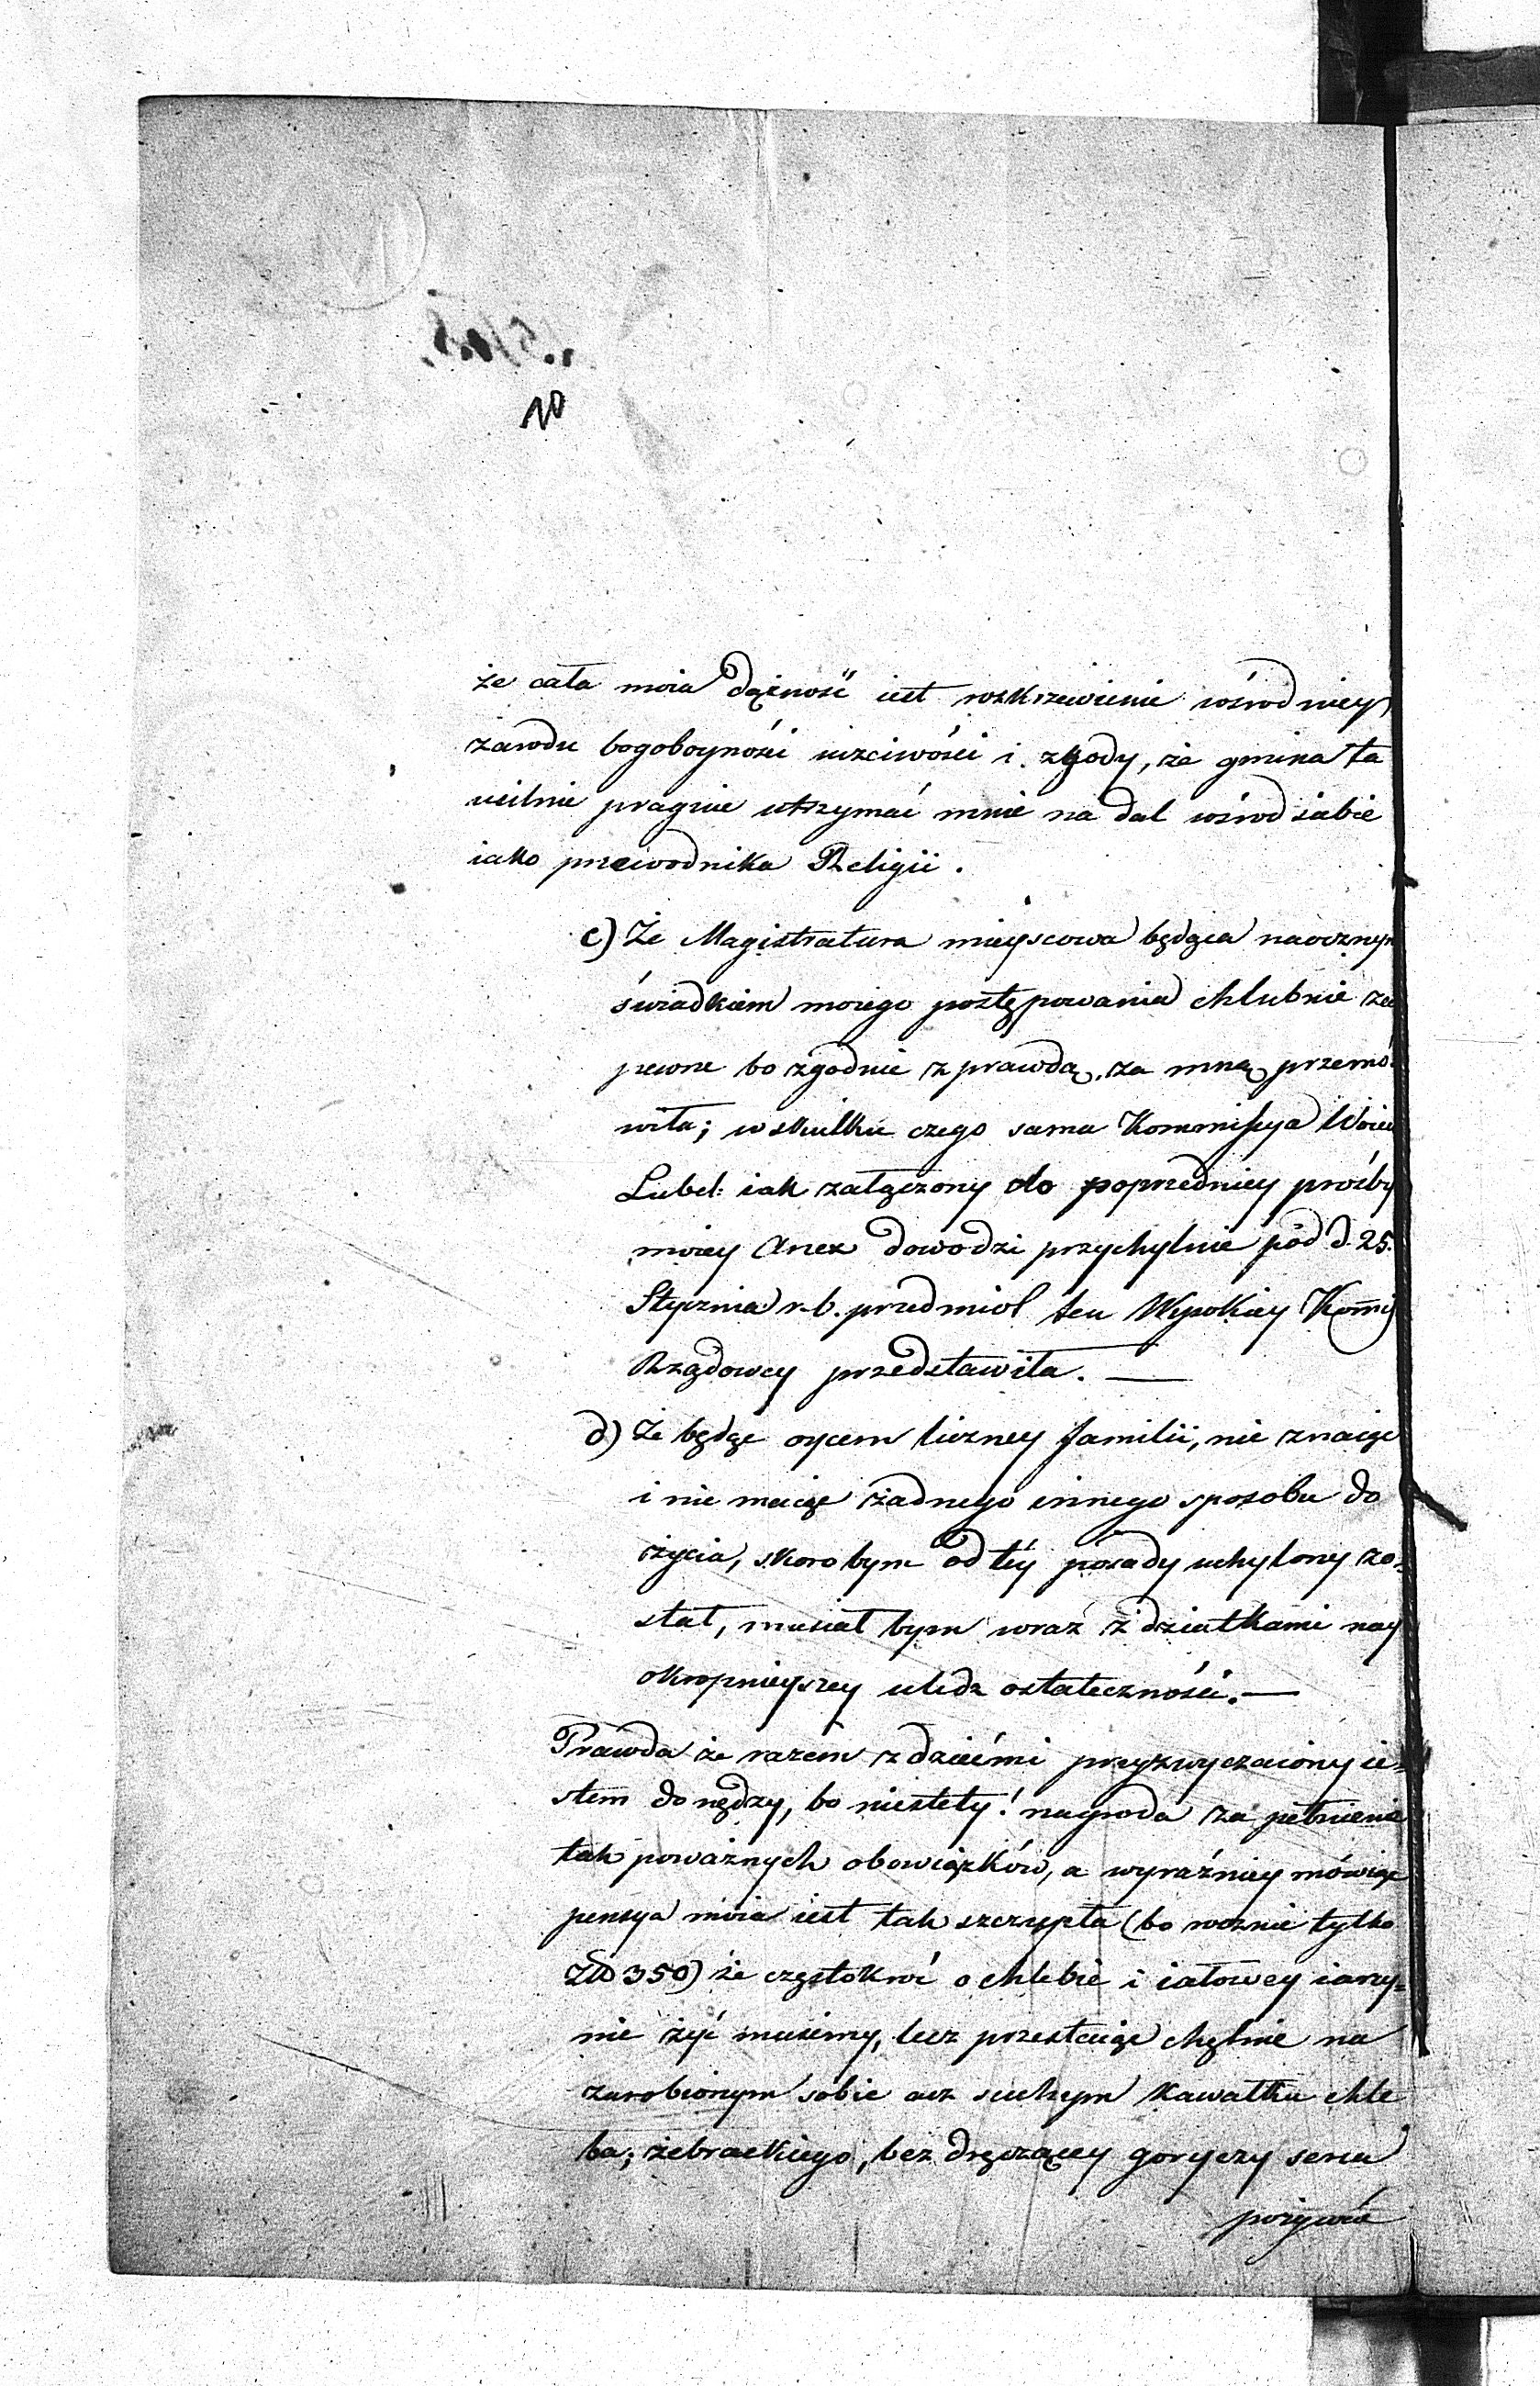 10
że cała moia dążność iest rozkrzewienie wśrod niey
zarodu bogoboyności uczciwości i zgody, że gmina ta
usilnie pragnie utrzymać mnie na dal wśrod siebie
iako przewodnika Religii.
c) Że Magistratura mieyscowa będąca naocznym
świadkiem moiego postępowania chlubnie za
pewne bo zgodnie z prawdą, za mną przemó-
wiła; w skutku czego sama Kommissya Woiew
Lubel: iak załączony do poprzedniey prośby
moiey Anex dowodzi przychylnie pod d. 25.
Stycznia r. b. przedmiot ten Wysokiey Kommis
Rządowey przedstawiła. —
d) Że będąc oycem liczney familii, nie znaiąc
i nie maiąc żadnego innego sposobu do
życia, skoro bym od téy posady uchylony zo=
stał, musiał bym wraz z dziatkami nay
okropnieyszey uledz ostateczności. —
Prawda że razem z dziećmi przyzwyczaiony ie=
stem do nędzy, bo niestety! nagroda za pełnienie
tak poważnych obowiązków, a wyraźniey mówiąc
pensya moia iest tak szczupła (bo rocznie tylko
Złp 350) że częstokroć o chlebie i iałowey iarzy=
nie żyć musimy, lecz przestaiąc chętnie na
zarobionym sobie acz suchym kawałku chle
ba; żebrackiego, bez dręczącey goryczy serca
pożywać